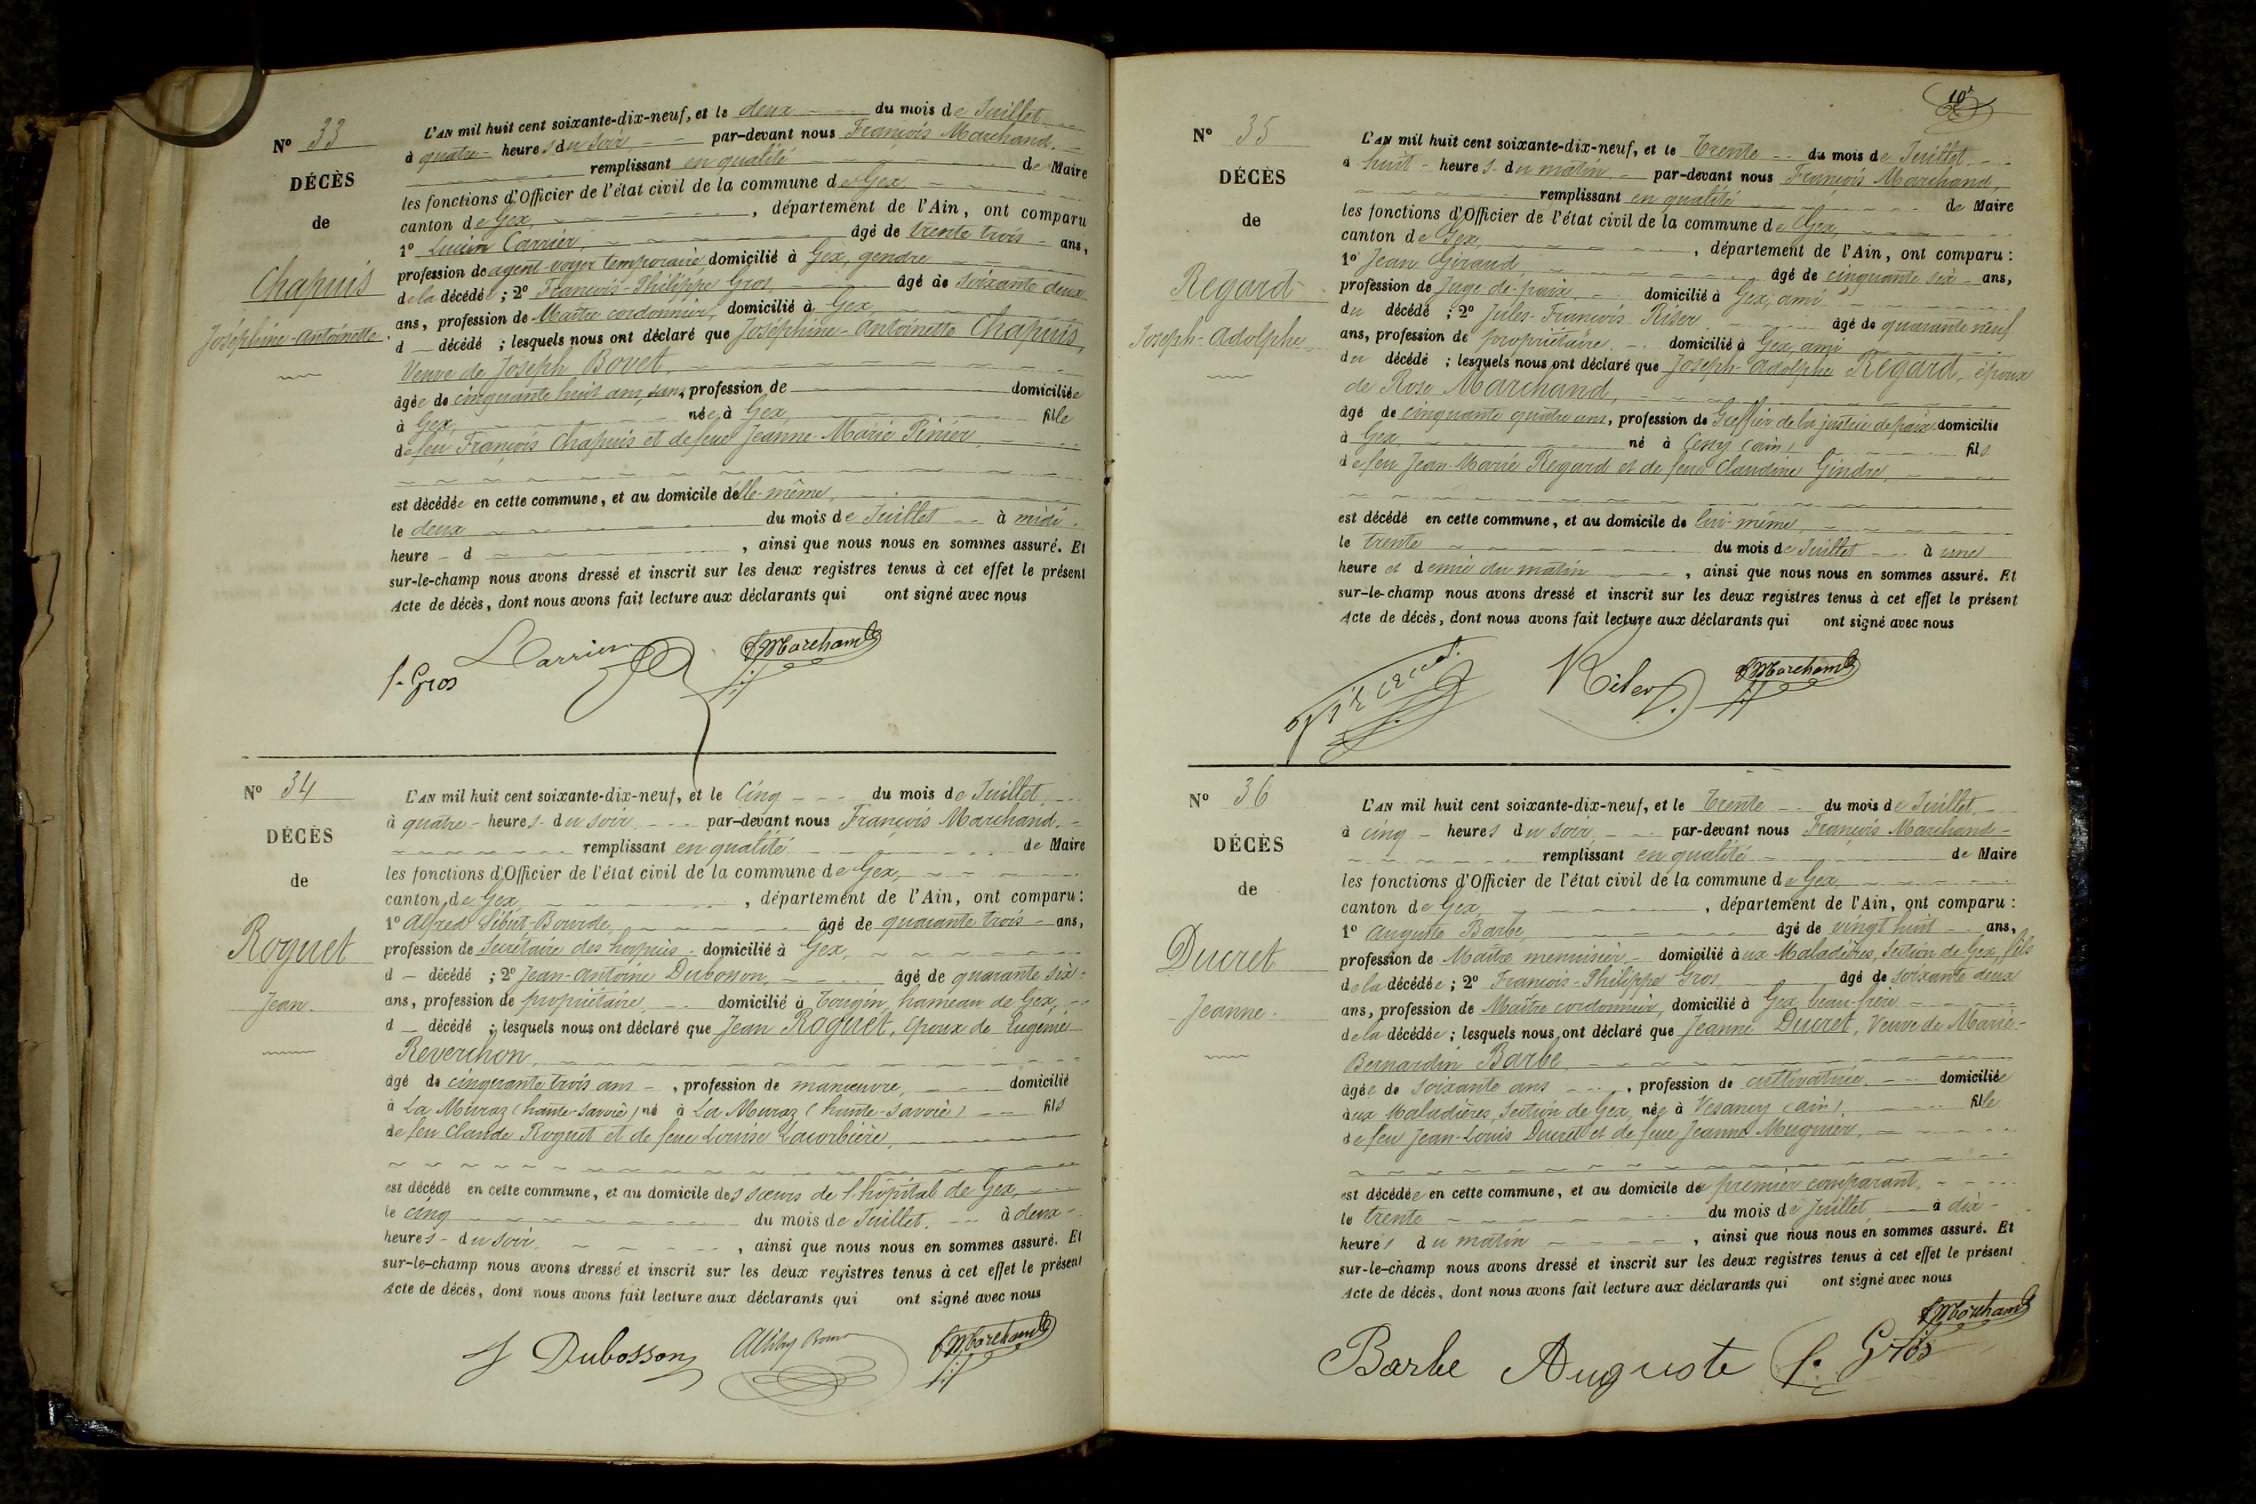 N° 33
DÉCÈS
de
Chapuis
Joséphine-Antoinette.
L'AN mil huit cent soixante-dix-neuf, et le deux du mois de Juillet
à quatre heures du soir par-devant nous François Marchand.
remplissant en qualité de Maire
les fonctions d'Officier de l'état civil de la commune de Gex
canton de Gex, , département de l'Ain, ont comparu
1° Lucien Carrier, âgé de trente trois ans,
profession de agent voyer temporaire domicilié à Gex, gendre
de la décédée ; 2° François-Philippe Gros, âgé de soixante deux
ans, profession de Maître cordonnier, domicilié à Gex
d décédé ; lesquels nous ont déclaré que Joséphine-Antoinette Chapuis,
Veuve de Joseph Bouet,
âgée de cinquante huit ans, sans profession de domiciliée
à Gex, née à Gex, fille
de feu François Chapuis et de feue Jeanne-Marie Pinier,
est décédée en cette commune, et au domicile d'elle-même,
le deux du mois de Juillet à midi.
heure d , ainsi que nous nous en sommes assuré. Et
sur-le-champ nous avons dressé et inscrit sur les deux registres tenus à cet effet le présent
Acte de décès, dont nous avons fait lecture aux déclarants qui ont signé avec nous
f. Gros Carrier fMarchand
N° 34
DÉCÈS
de
Roguet
Jean.
L'AN mil huit cent soixante-dix-neuf, et le Cinq du mois de Juillet
à quatre heures du soir par-devant nous François Marchand.
remplissant en qualité de Maire
les fonctions d'Officier de l'état civil de la commune de Gex,
canton de Gex , département de l'Ain, ont comparu :
1° Alfred Sibut-Bourde, âgé de quarante trois ans,
profession de Secrétaire des hospices domicilié à Gex,
d décédé ; 2° Jean-Antoine Dubosson, âgé de quarante six
ans, profession de propriétaire, domicilié à Tougin, hameau de Gex,
d décédé ; lesquels nous ont déclaré que Jean Roguet, époux de Eugénie
Reverchon,
âgé de cinquante trois ans , profession de manœuvre, domicilié
à La Muraz (haute-Savoie) né à La Muraz (haute-Savoie) fils
de feu Claude Roguet et de feue Louise Lacorbière,
est décédé en cette commune, et au domicile des sœurs de l'hôpital de Gex,
le cinq du mois de Juillet. à deux
heures du soir , ainsi que nous nous en sommes assuré. Et
sur-le-champ nous avons dressé et inscrit sur les deux registres tenus à cet effet le présent
Acte de décès, dont nous avons fait lecture aux déclarants qui ont signé avec nous
J Dubosson fMarchand
N° 35
DÉCÈS
de
Regard
Joseph-Adolphe
L'AN mil huit cent soixante-dix-neuf, et le Trente du mois de Juillet
à huit heures du matin par-devant nous François Marchand,
remplissant en qualité de Maire
les fonctions d'Officier de l'état civil de la commune de Gex,
canton de Gex, , département de l'Ain, ont comparu :
1° Jean Giraud, âgé de cinquante six ans,
profession de Juge de paix, domicilié à Gex, ami
du décédé ; 2° Jules-François Riser âgé de quarante neuf
ans, profession de propriétaire domicilié à Gex, ami
du décédé ; lesquels nous ont déclaré que Joseph-Adolphe Regard, époux
de Rose Marchand,
âgé de cinquante quatre ans, profession de Greffier de la justice de paix domicilié
à Gex, né à Cessy (ain) fils
de feu Jean-Marie Regard et de feue Claudine Gindre,
est décédé en cette commune, et au domicile de lui-même,
le trente du mois de Juillet à une
heure et demie du matin , ainsi que nous nous en sommes assuré. Et
sur-le-champ nous avons dressé et inscrit sur les deux registres tenus à cet effet le présent
Acte de décès, dont nous avons fait lecture aux déclarants qui ont signé avec nous
Riser fMarchand
N° 36
DÉCÈS
de
Ducret
Jeanne.
L'AN mil huit cent soixante-dix-neuf, et le Trente du mois de Juillet
à cinq heures du soir par-devant nous François Marchand
remplissant en qualité de Maire
les fonctions d'Officier de l'état civil de la commune de Gex
canton de Gex , département de l'Ain, ont comparu :
1° Auguste Barbe, âgé de vingt huit ans,
profession de Maître menuisier domicilié aux Maladières, Section de Gex, fils
de la décédée ; 2° François-Philippe Gros âgé de soixante deux
ans, profession de Maître cordonnier, domicilié à Gex, beau-frère
de la décédée ; lesquels nous ont déclaré que Jeanne Ducret, Veuve de Marie-
Bernardin Barbe,
âgée de soixante ans , profession de cultivatrice. domiciliée
aux Maladières, Section de Gex, née à Vesancy (ain), fille
de feu Jean-Louis Ducret et de feue Jeanne Mugnier,
est décédée en cette commune, et au domicile du premier comparant,
le trente du mois de Juillet à dix
heures du matin , ainsi que nous nous en sommes assuré. Et
sur-le-champ nous avons dressé et inscrit sur les deux registres tenus à cet effet le présent
Acte de décès, dont nous avons fait lecture aux déclarants qui ont signé avec nous
fMarchand
Barbe Auguste f. Gros